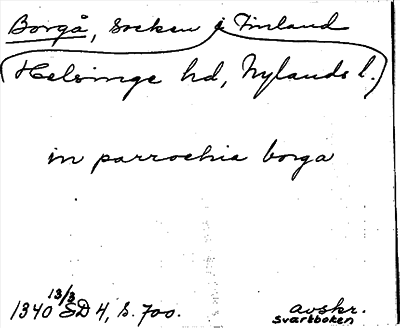 Borgå, socken i Finland
(Helsinge hd, Nylands l.)
in parrochia borga
1340 13/3 SD 4, s. 700.
avskr.
Svartboken